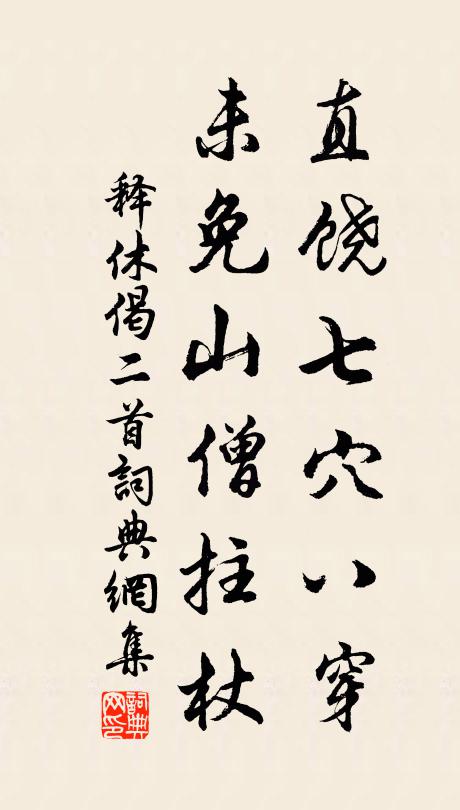 直饶七穴八穿
未免山僧拄杖
释休偈二首詞典網集
詞典网印